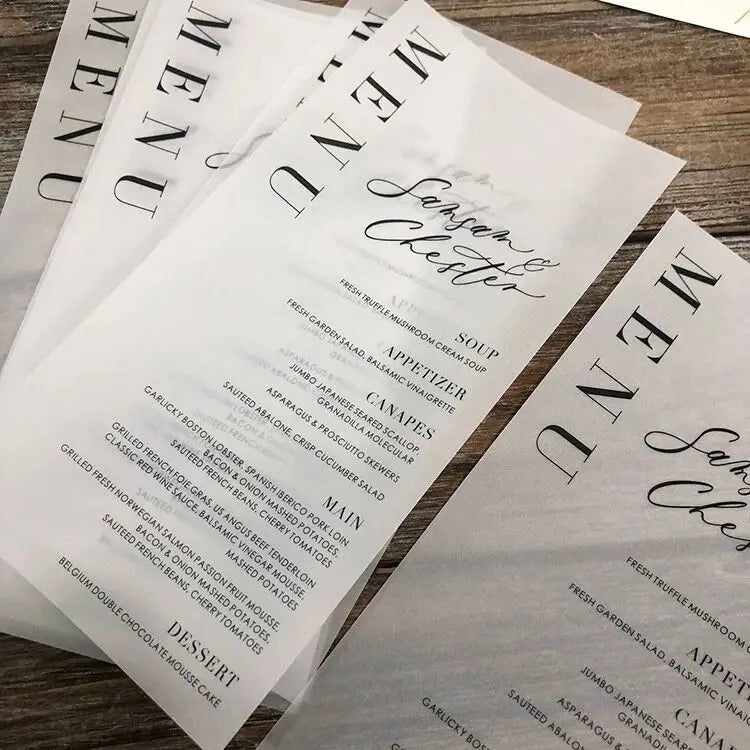 MENU
MENU
MENU
Samsam &
Chester
SOUP
FRESH TRUFFLE MUSHROOM CREAM SOUP
APPETIZER
FRESH GARDEN SALAD, BALSAMIC VINAIGRETTE
CANAPES
JUMBO JAPANESE SEARED SCALLOP,
GRANADILLA MOLECULAR
ASPARAGUS & PROSCIUTTO SKEWERS
SAUTEED ABALONE, CRISP CUCUMBER SALAD
MAIN
GARLICKY BOSTON LOBSTER, SPANISH IBERICO PORK LOIN
BACON & ONION MASHED POTATOES,
SAUTEED FRENCH BEANS, CHERRY TOMATOES
GRILLED FRENCH FOIE GRAS, US ANGUS BEEF TENDERLOIN
CLASSIC RED WINE SAUCE, BALSAMIC VINEGAR MOUSSE,
MASHED POTATOES
GRILLED FRESH NORWEGIAN SALMON PASSION FRUIT MOUSSE
BACON & ONION MASHED POTATOES,
SAUTEED FRENCH BEANS, CHERRY TOMATOES
DESSERT
BELGIUM DOUBLE CHOCOLATE MOUSSE CAKE
MENU
Samsa
Ches
FRESH TRUFFLE MUSHROOM
APPETIZ
FRESH GARDEN SALAD, BALSAMIC VINAIG
CANA
JUMBO JAPANESE SEARED
GRANADILLA
ASPARAGUS & PROSC
SAUTEED ABALONE, CRISP
GARLICKY BOSTON LOBSTER, SPANISH